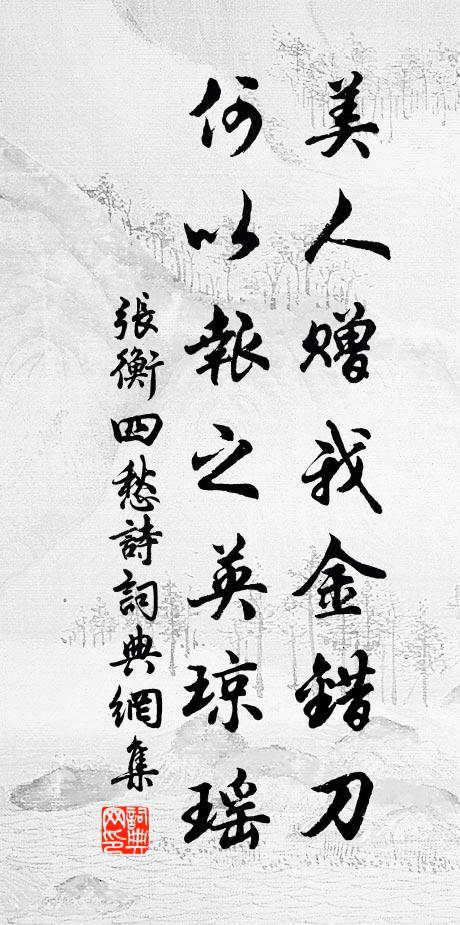 美人赠我金錯刀
何以報之英琼瑶
張衡四愁詩詞典網集
詞典網印